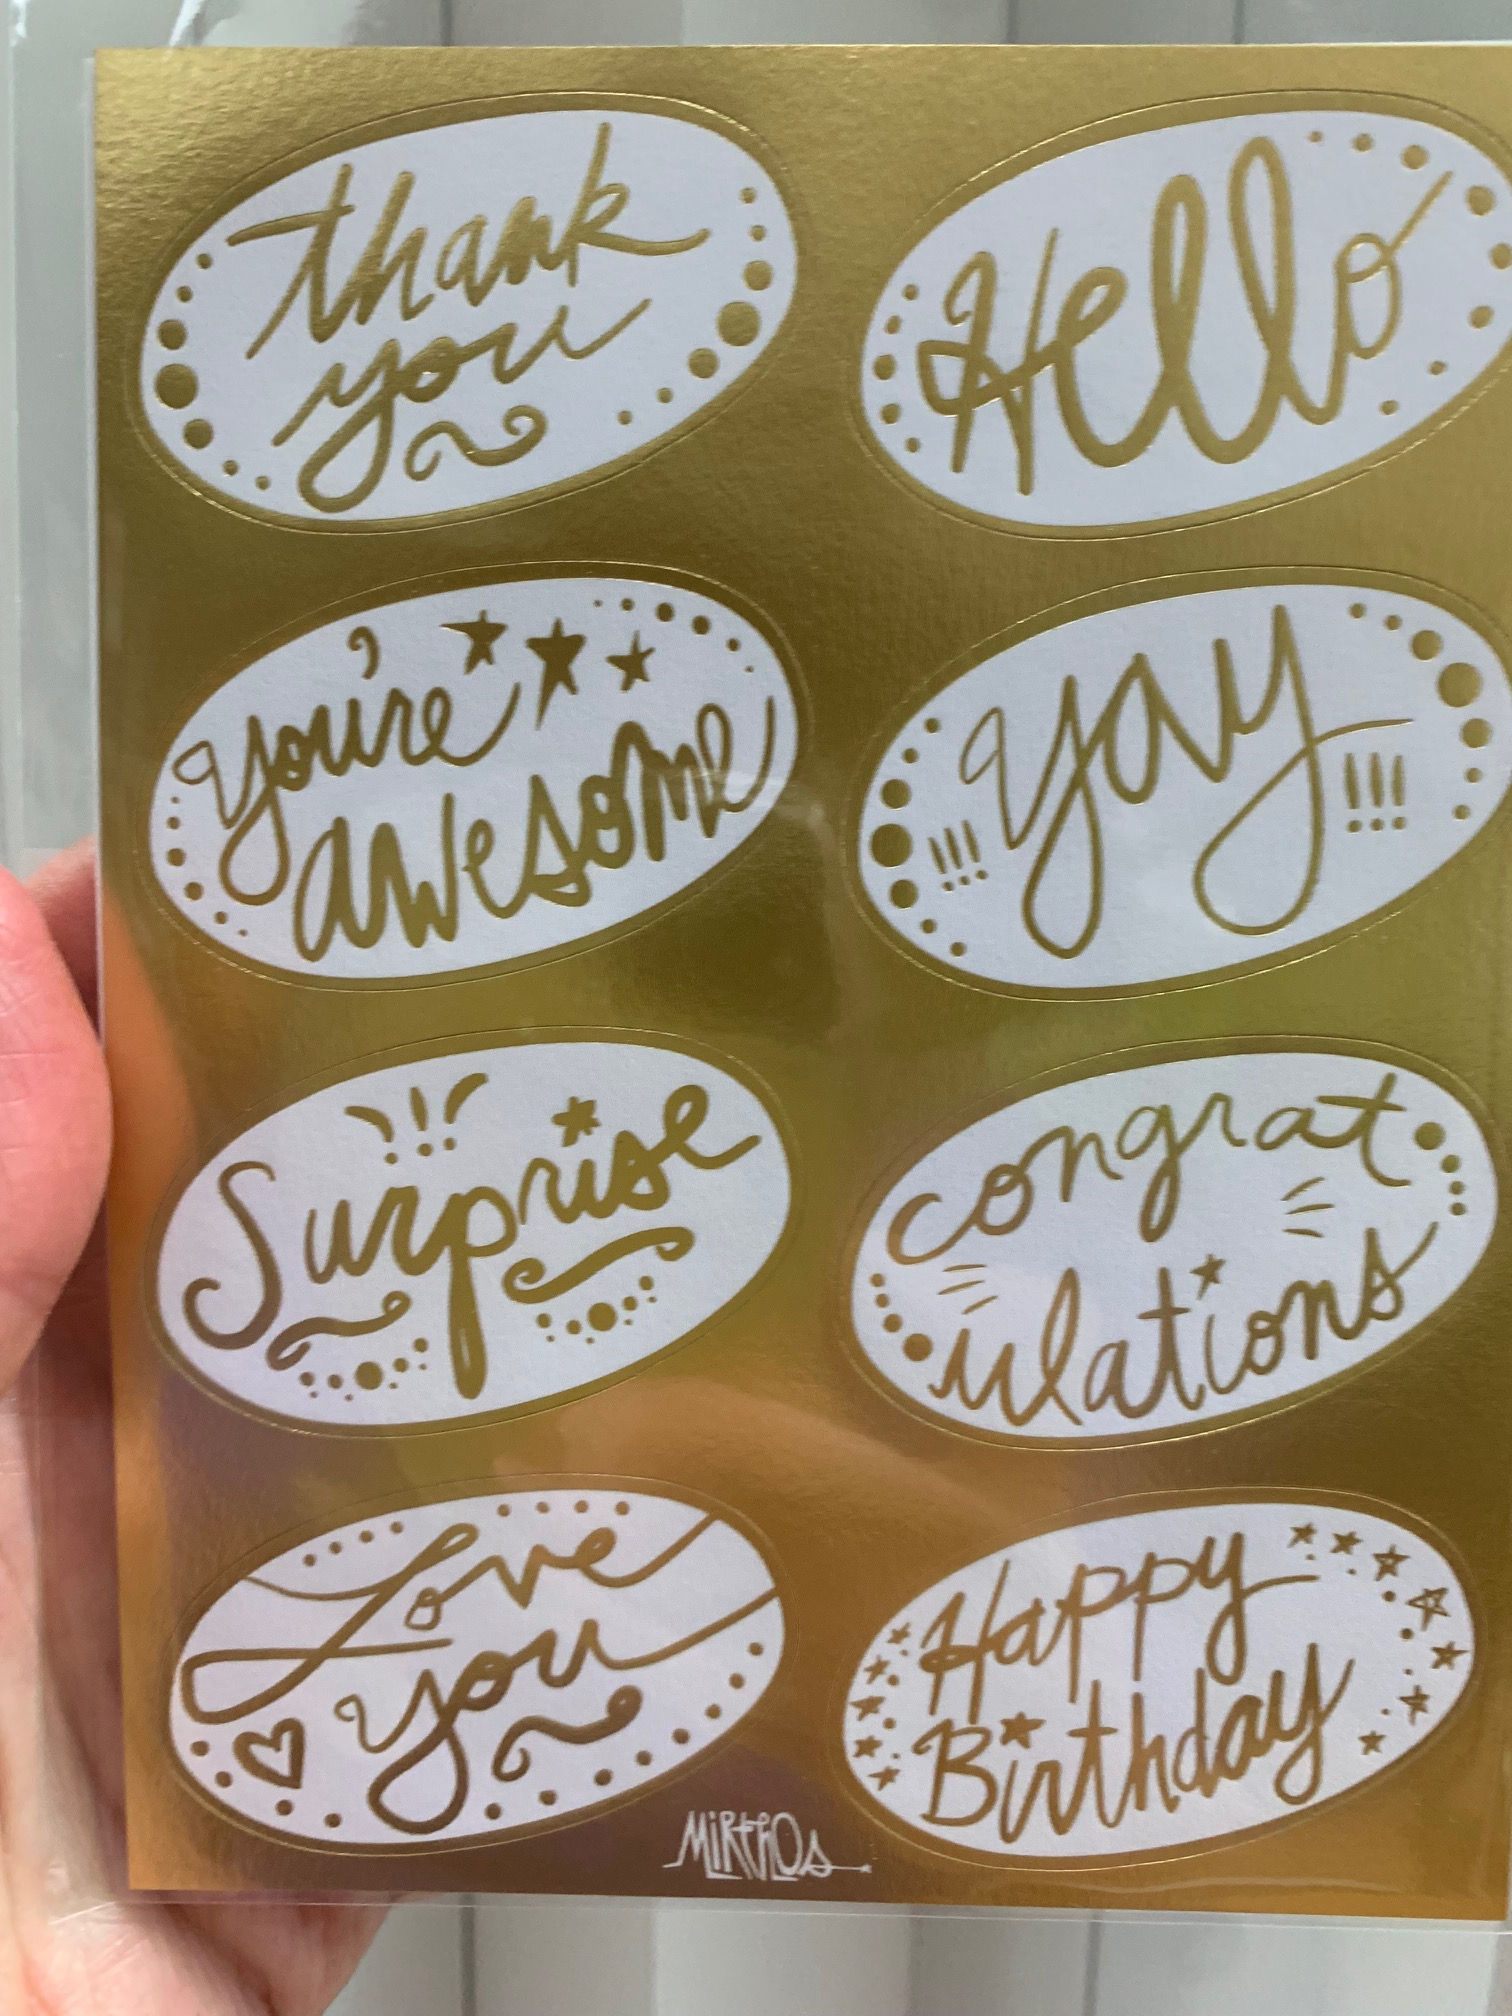 thank
you
Hello
you're
awesome
!!! yay !!!
!!!
Surprise
congrat
ulations
Love
you
Happy
Birthday
MiRthOs